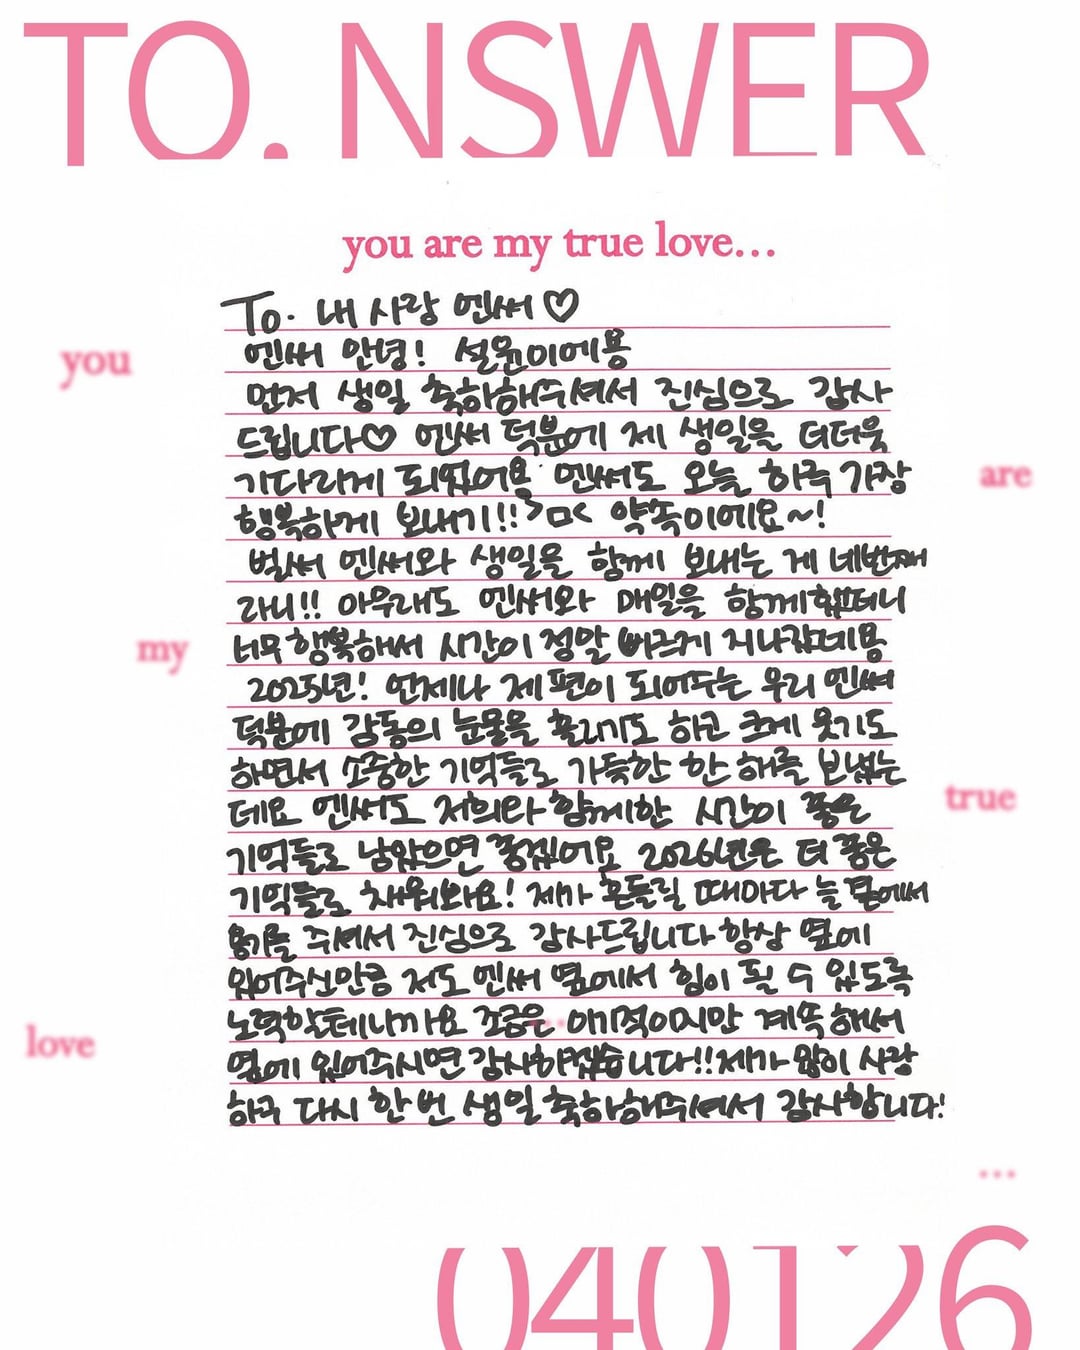 TO. NSWER
you are my true love...
To. 내 사랑 엔써♡
엔써 안녕! 설윤이에용
you
먼저 생일 축하해주셔서 진심으로 감사
드립니다♡ 엔써 덕분에 제 생일을 더더욱
기다리게 되었어요 엔써도 오늘 하루 가장
are
행복하게 보내기!! >ㅁ< 약속이에요~!
벌써 엔써와 생일을 함께 보내는 게 네번째
라니!! 아무래도 엔써와 매일을 함께했더니
너무 행복해서 시간이 정말 빠르게 지나갔네용
my
2025년! 언제나 제 편이 되어주는 우리 엔써
덕분에 감동의 눈물을 흘리기도 하고 크게 웃기도
하면서 소중한 기억들로 가득한 한 해를 보냈는
데요 엔써도 저희와 함께한 시간이 좋은
true
기억들로 남았으면 좋겠어요 2026년은 더 좋은
기억들로 채워봐요! 제가 흔들릴 때마다 늘 옆에서
용기를 주셔서 진심으로 감사드립니다 항상 옆에
있어주신만큼 저도 엔써 옆에서 힘이 될 수 있도록
노력할테니까요 조금은 이기적이지만 계속해서
...
love
옆에 있어주시면 감사하겠습니다!! 제가 많이 사랑
하구 다시 한 번 생일 축하해주셔서 감사합니다!
...
040126